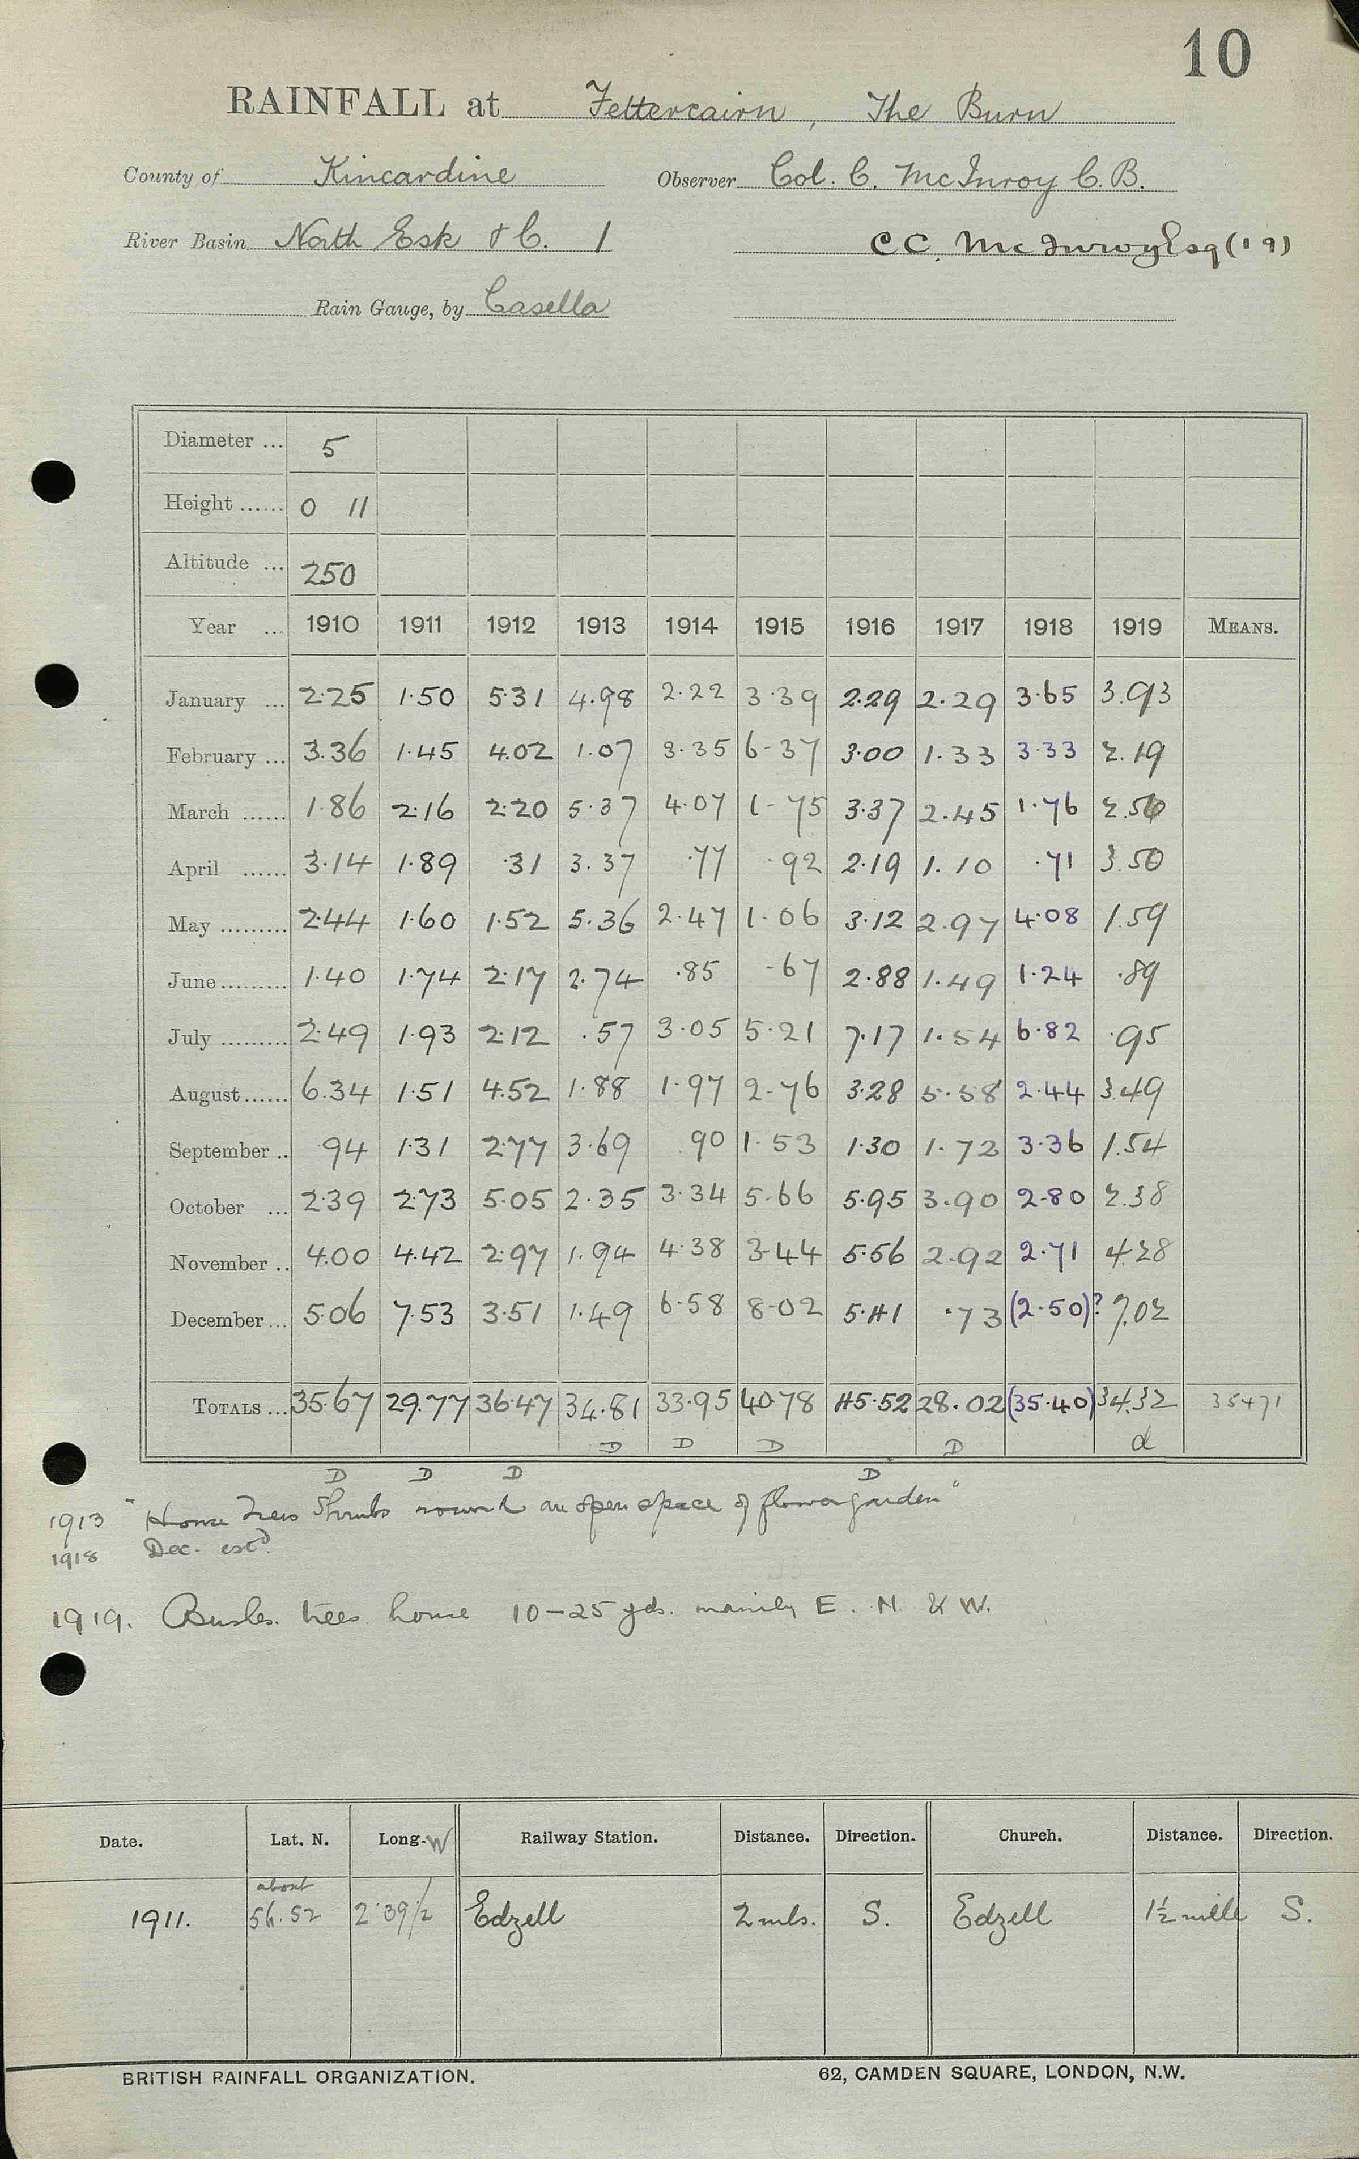 10
RAINFALL at Fettercairn, The Burn
County of Kincardine Observer Col. C. McInroy C.B.
River Basin North Esk &C. 1 C C. McInroy Esq (19)
Rain Gauge, by Casella
Diameter ... 5
Height ...... 0 11
Altitude ... 250
Year ... 1910 1911 1912 1913 1914 1915 1916 1917 1918 1919 MEANS.
January ... 2.25 1.50 5.31 4.98 2.22 3.39 2.29 2.29 3.65 3.93
February ... 3.36 1.45 4.02 1.07 3.35 6.37 3.00 1.33 3.33 2.19
March ...... 1.86 2.16 2.20 5.37 4.07 1.75 3.37 2.45 1.76 2.56
April ...... 3.14 1.89 .31 3.37 .77 .92 2.19 1.10 .71 3.50
May ......... 2.44 1.60 1.52 5.36 2.47 1.06 3.12 2.97 4.08 1.59
June ......... 1.40 1.74 2.17 2.74 .85 .67 2.88 1.49 1.24 .89
July ......... 2.49 1.93 2.12 .57 3.05 5.21 7.17 1.54 6.82 .95
August ...... 6.34 1.51 4.52 1.88 1.97 2.76 3.28 5.58 2.44 3.49
September .. .94 1.31 2.77 3.69 .90 1.53 1.30 1.72 3.36 1.54
October ... 2.39 2.73 5.05 2.35 3.34 5.66 5.95 3.90 2.80 2.38
November .. 4.00 4.42 2.97 1.94 4.38 3.44 5.56 2.92 2.71 4.28
December ... 5.06 7.53 3.51 1.49 6.58 8.02 5.41 .73 (2.50)? 7.02
TOTALS ... 35.67 29.77 36.47 34.81 33.95 40.78 45.52 28.02 (35.40) 34.32 35471
D D D D d
D D D D
1913 "Home Trees Shrubs round an open space of flower garden"
1918 Dec. estd.
1919. Bushes. trees house 10-25 yds. mainly E. N. & W.
Date. Lat. N. Long. W Railway Station. Distance. Direction. Church. Distance. Direction.
about
1911. 56.52 2.39½ Edzell 2 mls. S. Edzell 1½ mile S.
BRITISH RAINFALL ORGANIZATION. 62, CAMDEN SQUARE, LONDON, N.W.